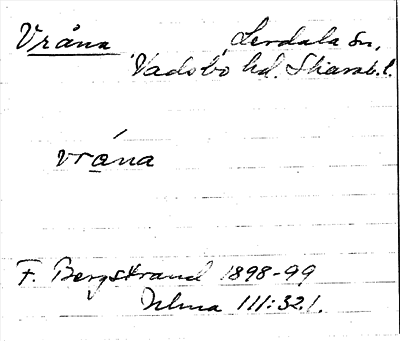 Vråna Lerdala sn,
Vadsbo hd. Skarab.l.
vrána
F. Bergstrand 1898-99
Ulma 111:32.1.